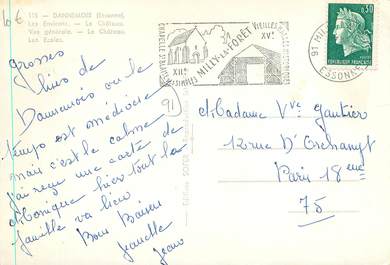 115 - DANNEMOIS (Essonne).
Les Environs. - Le Château.
Vue générale. - Le Château.
Les Ecoles.
6€
91
CHAPELLE St BLAISE DES SIMPLES
XIIe S.
MILLY-LA-FORÊT
VIEILLES HALLES
XVe S.
91 MILLY-LA-FORÊT
ESSONNE
0,30
REPUBLIQUE FRANÇAISE
grosses
bises de
Dannemois ou le
temps est médiocre
mais c'est le calme
j'ai reçu une carte de
Monique hier tout la
famille va bien
Bons Baisers
Jeanette
Jean
Madame Vve Gautier
12 rue D'Oschanyt
Paris 18eme
75